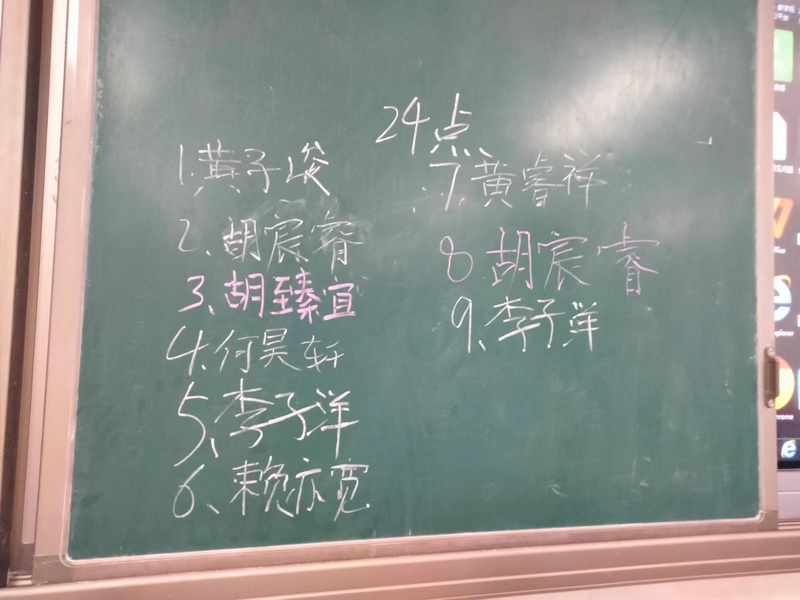 24点
1.黄子峻
2、胡宸睿
3、胡臻宜
4、何昊轩
5、李子洋
6、赖亦宽
7.黄睿祥
8.胡宸睿
9、李子洋